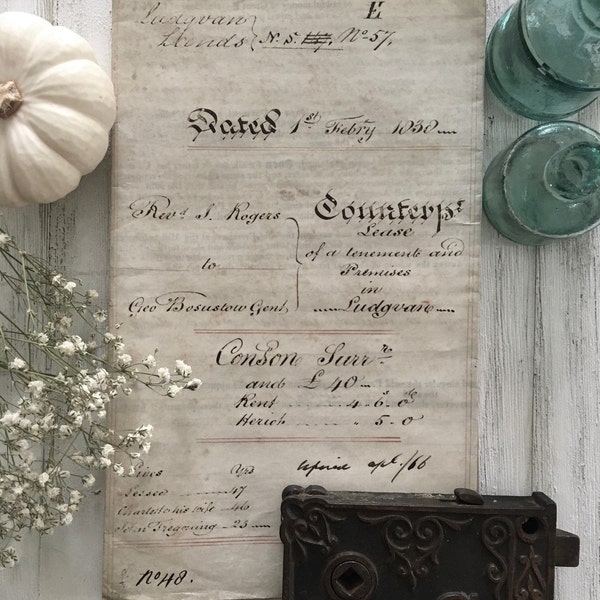 Ludgvan
E
Lands N. 5. No 57.
Dated 1st Febry 1838
Revd J. Rogers
to
Geo Bosustow Gent
Counterpt
Lease
of a tenements and
Premises
in
Ludgvan
Con̄son Surrr
and £ 40
Rent 4 - 6s - 0d
Heriot " 5 - 0
Lives Yrs
Lessee 47
Charlotte his wife 46
John Tregoning - 23
apl/66
No 48.